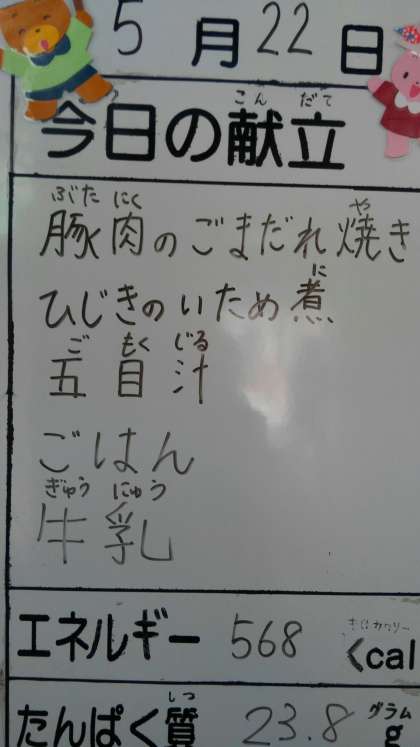 5月22日
今日の献立
こんだて
豚肉のごまだれ焼き
ぶたにく や
ひじきのいため煮
に
五目汁
ごもくじる
ごはん
牛乳
ぎゅうにゅう
エネルギー 568 Kcal
キロカロリー
たんぱく質 23.8 g
しつ グラム